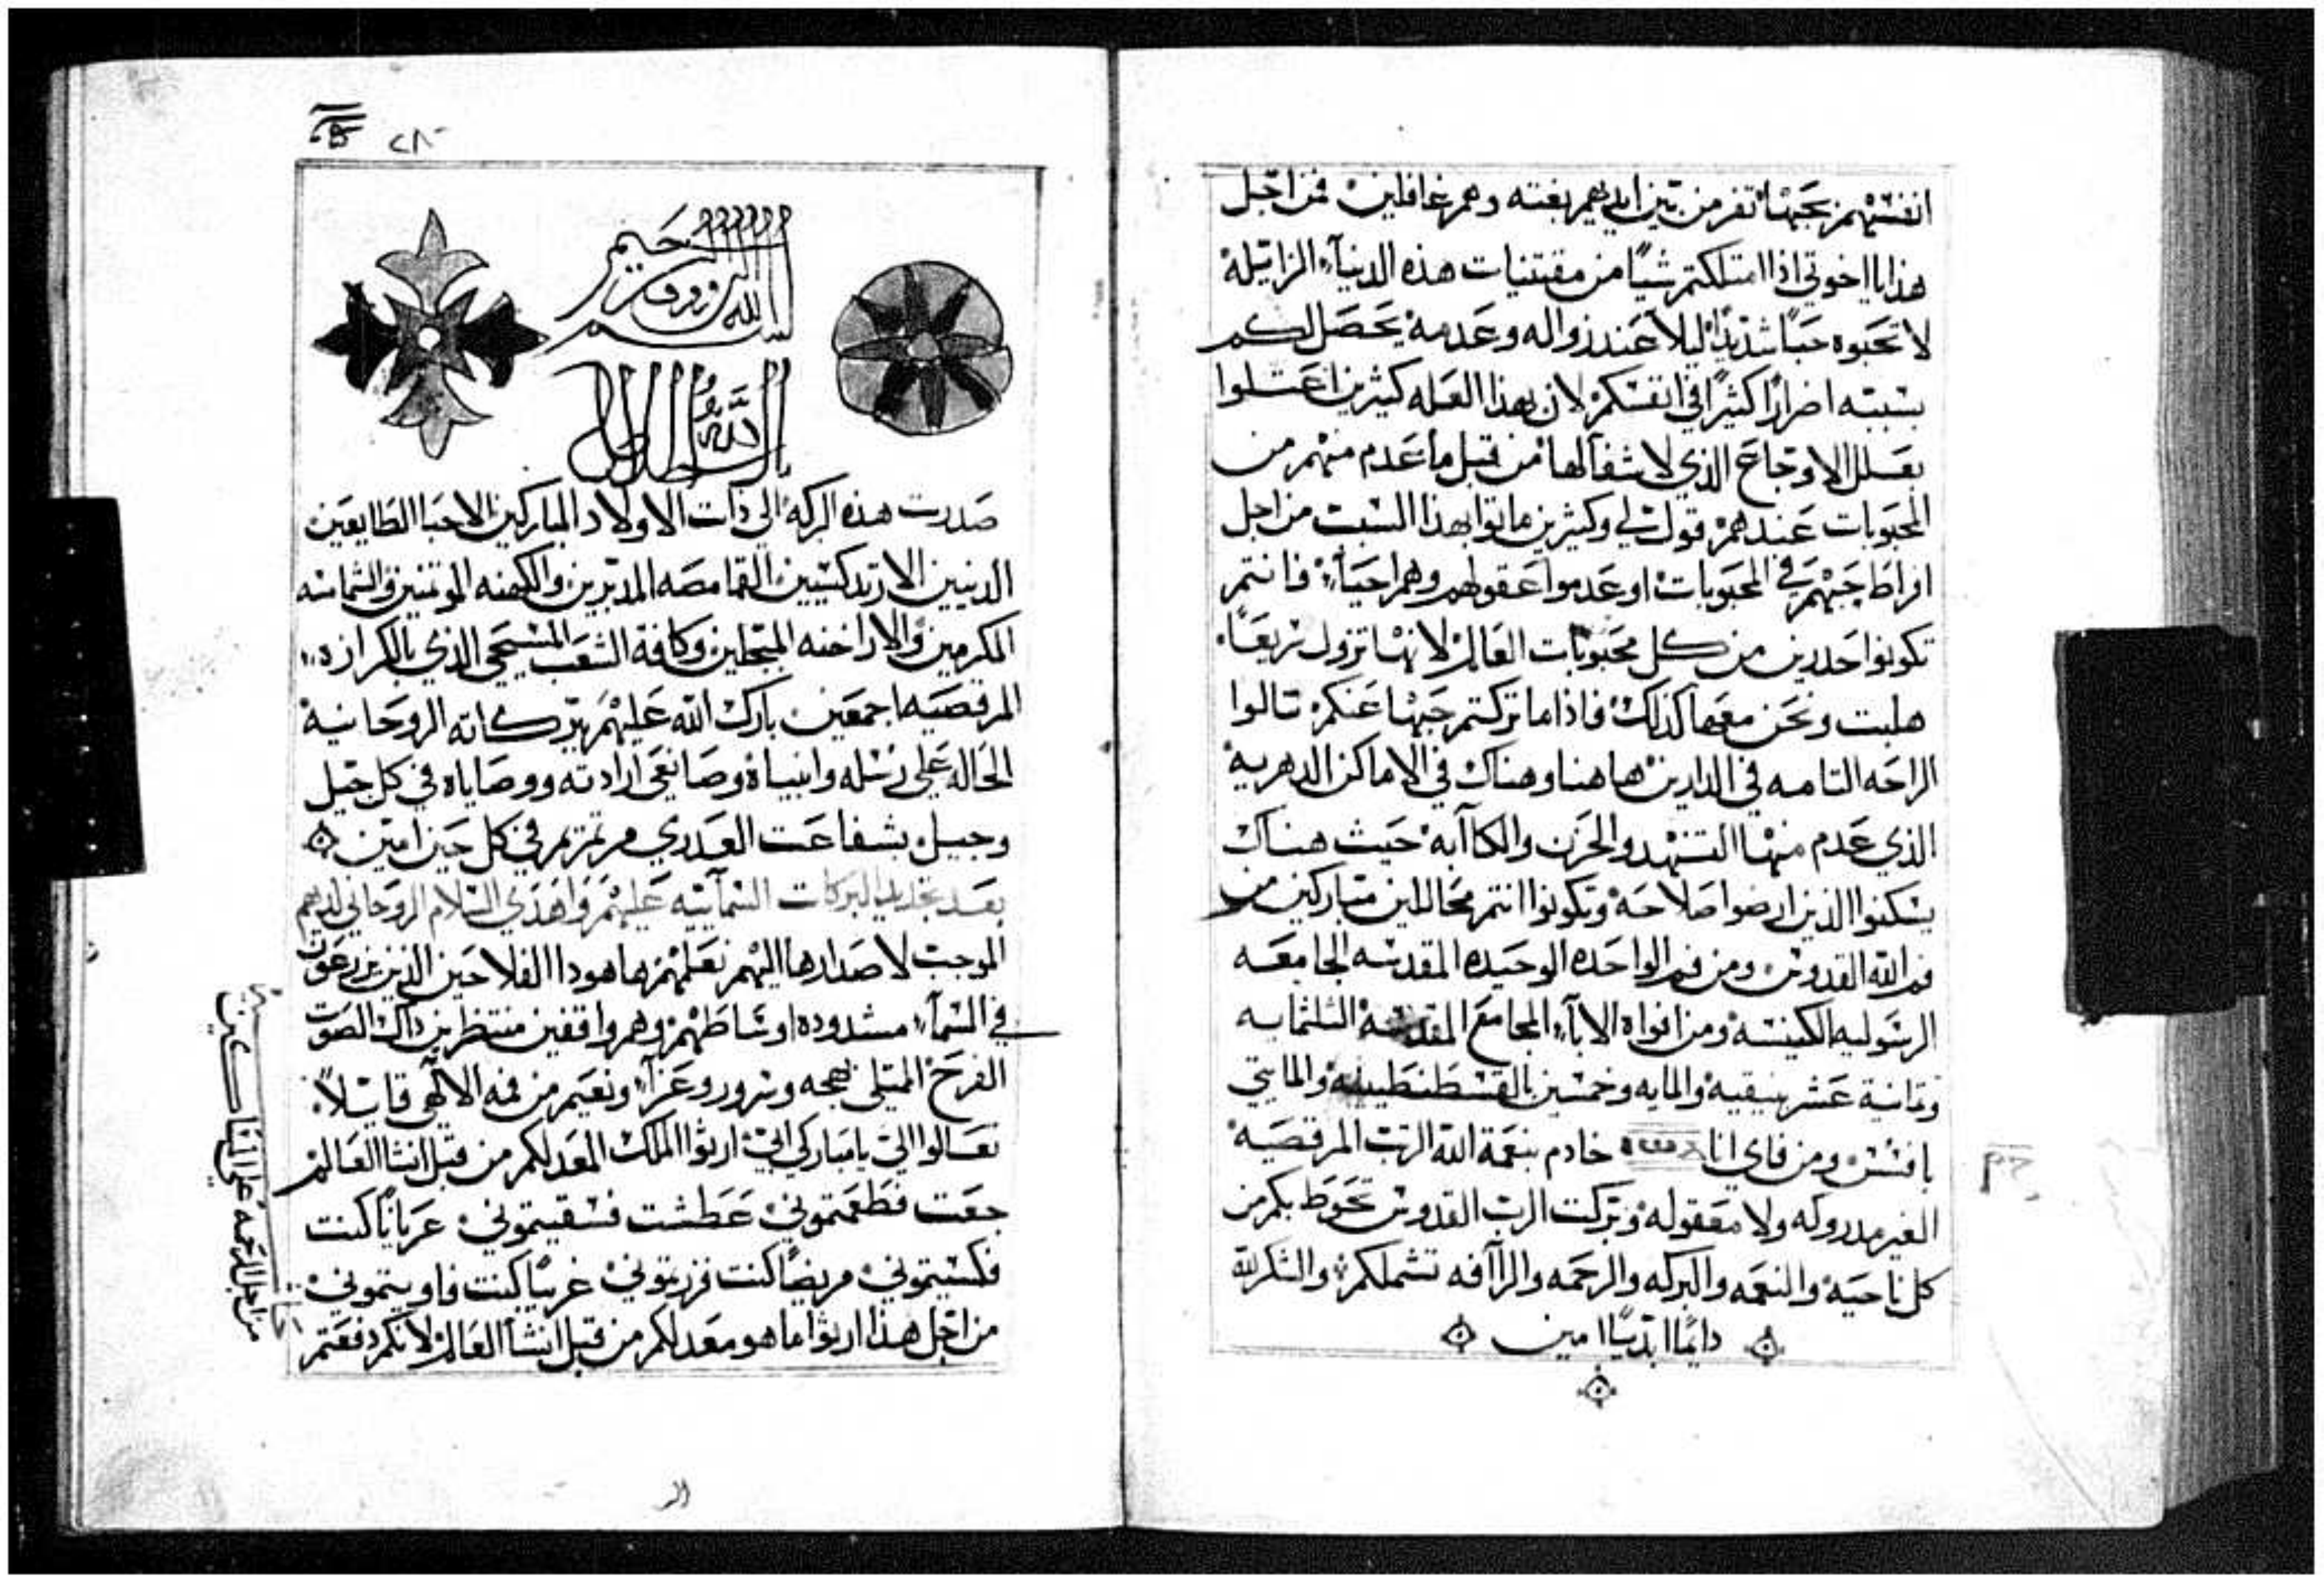 انفسهم بحبها تفر من بين ايديهم بغته وهم غافلين فمن اجل
هذا يا اخوتي اذا امتلكتم شياً من مقتنيات هذه الدنيآء الزايله
لا تحبوه حباً شديداً ليلا عند زواله وعدمه يحصل لكم
بسببه اضراراً كثيراً في انفسكم لان بهذا العله كثيرين اعتلوا
بعلل الاوجاع الذي لا شفآ لها من قبل ما عدم منهم من
المحبوبات عندهم قولت لي وكثيرين ماتوا بهذا السبب من اجل
افراط حبهم في المحبوبات او عدموا عقولهم وهم احيآء فانتم
تكونوا حدرين من كل محبوبات العالم لانها تزول سريعاً
هلبت ونحن معها كذلك فاذا ما تركتم حبها عنكم تنالوا
الراحه التامه في الدارين هاهنا وهناك في الاماكن الدهريه
الذي عدم منها التنهد والحزن والكاآبه حيث هناك
يسكنوا الذين ارضوا صلاحه وتكونوا انتم محاللين مباركين من
فم الله القدوس ومن فم الواحده الوحيده المقدسه الجامعه
الرسوليه الكنيسه ومن افواه الابآء المجامع المقدسه الثلثمايه
وتمانية عشر بنيقيه والمايه وخمسين بالقسطنطينيه والمايتي
بافسس ومن فاي انا خادم بنعمة الله الرتب المرقصيه
الغير مدروكه ولا معقوله وبركت الرب القدوس تحوط بكم من
كل ناحيه والنعمه والبركه والرحمه والراآفه تشملكم والشكر لله
دايماً ابدياً امين
٢٨٠
بسم الله الرووف الرحيم
صدرت هذه البركه الي ذات الاولاد المباركين الاحبا الطايعين
الدينيين الارتدكسيين القمامصه المدبرين والكهنه الموتمنين والشمامسه
المكرمين والاراخنه المبجلين وكافة الشعب المسيحي الذي بالكرازه
المرقصيه اجمعين بارك الله عليهم ببركاته الروحانيه
الحاله علي رسله وانبياه وصانعي ارادته ووصاياه في كل جيل
وجيل بشفاعت العدري مرتمريم في كل حين امين
بعد تجديد البركات السمآييه عليهم واهدي السلام الروحاني لديهم
الموجب لاصدارها اليهم نعلمهم هاهودا الفلاحين الذين يزرعون
في السمآء مشدوده اوساطهم وهم واقفين منتظرين داك الصوت
الفرح الممتلي بهجه وسرور وعزآء ونعيم من فمه الالهي قايلاً
تعالوا الي يا مباركي ابي ارثوا الملك المعد لكم من قبل انشا العالم
جعت فطعمتموني عطشت فسقيتموني عرياناً كنت
فكسيتموني مريضاً كنت فزرتموني غريباً كنت فاويتموني
من اجل هذا ارثوا ما هو معد لكم من قبل انشآ العالم لانكم دفعتم
من اجل الرحمه علي المساكين